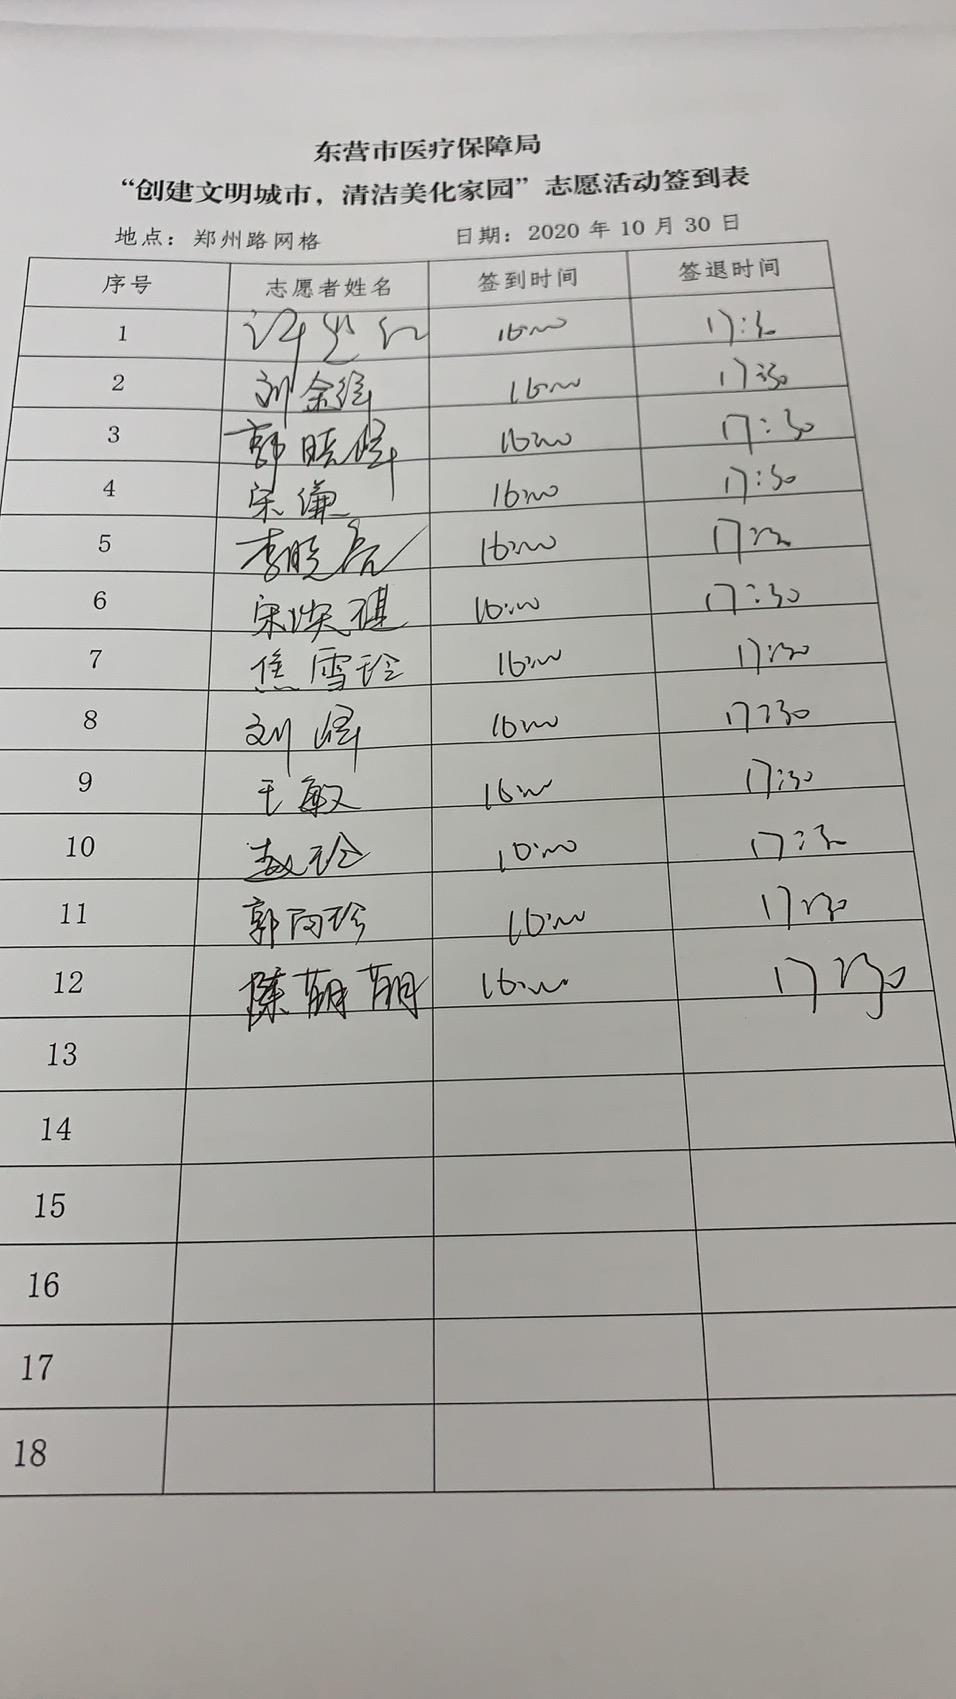 东营市医疗保障局
“创建文明城市，清洁美化家园”志愿活动签到表
地点：郑州路网格 日期：2020 年 10 月 30 日
序号 志愿者姓名 签到时间 签退时间
1 16:00 17:30
2 刘金 16:00 17:30
3 郭晓峰 16:00 17:30
4 宋谦 16:00 17:30
5 李晓亮 16:00 17:30
6 宋 琪 16:00 17:30
7 焦雪玲 16:00 17:30
8 刘峰 16:00 17:30
9 王敏 16:00 17:30
10 赵玲 16:00 17:30
11 郭丙珍 16:00 17:30
12 陈萌萌 16:00 17:30
13
14
15
16
17
18